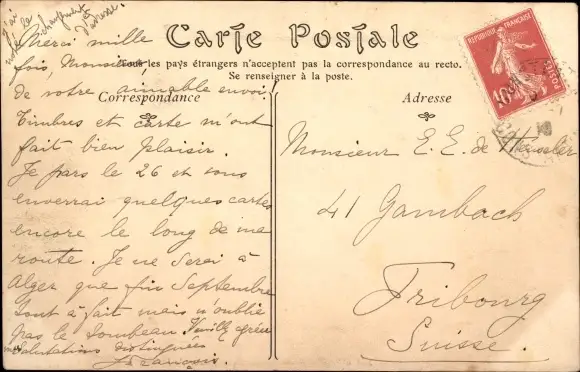 J'ai
Carte Postale
Tous les pays étrangers n'acceptent pas la correspondance au recto.
Se renseigner à la poste.
Correspondance
Merci mille
fois, Monsieur,
de votre aimable envoi.
Timbres et carte m'ont
fait bien plaisir.
Je pars le 26 et vous
enverrai quelques cartes
encore le long de ma
route. Je ne serai à
Alger que fin Septembre
tout à fait mais n'oublie
pas le Tombeau. Veuillez agréer
mes salutations distinguées
Adresse
Monsieur E. E. de
41 Gambach
Fribourg
Suisse.
REPUBLIQUE FRANÇAISE
POSTES
10